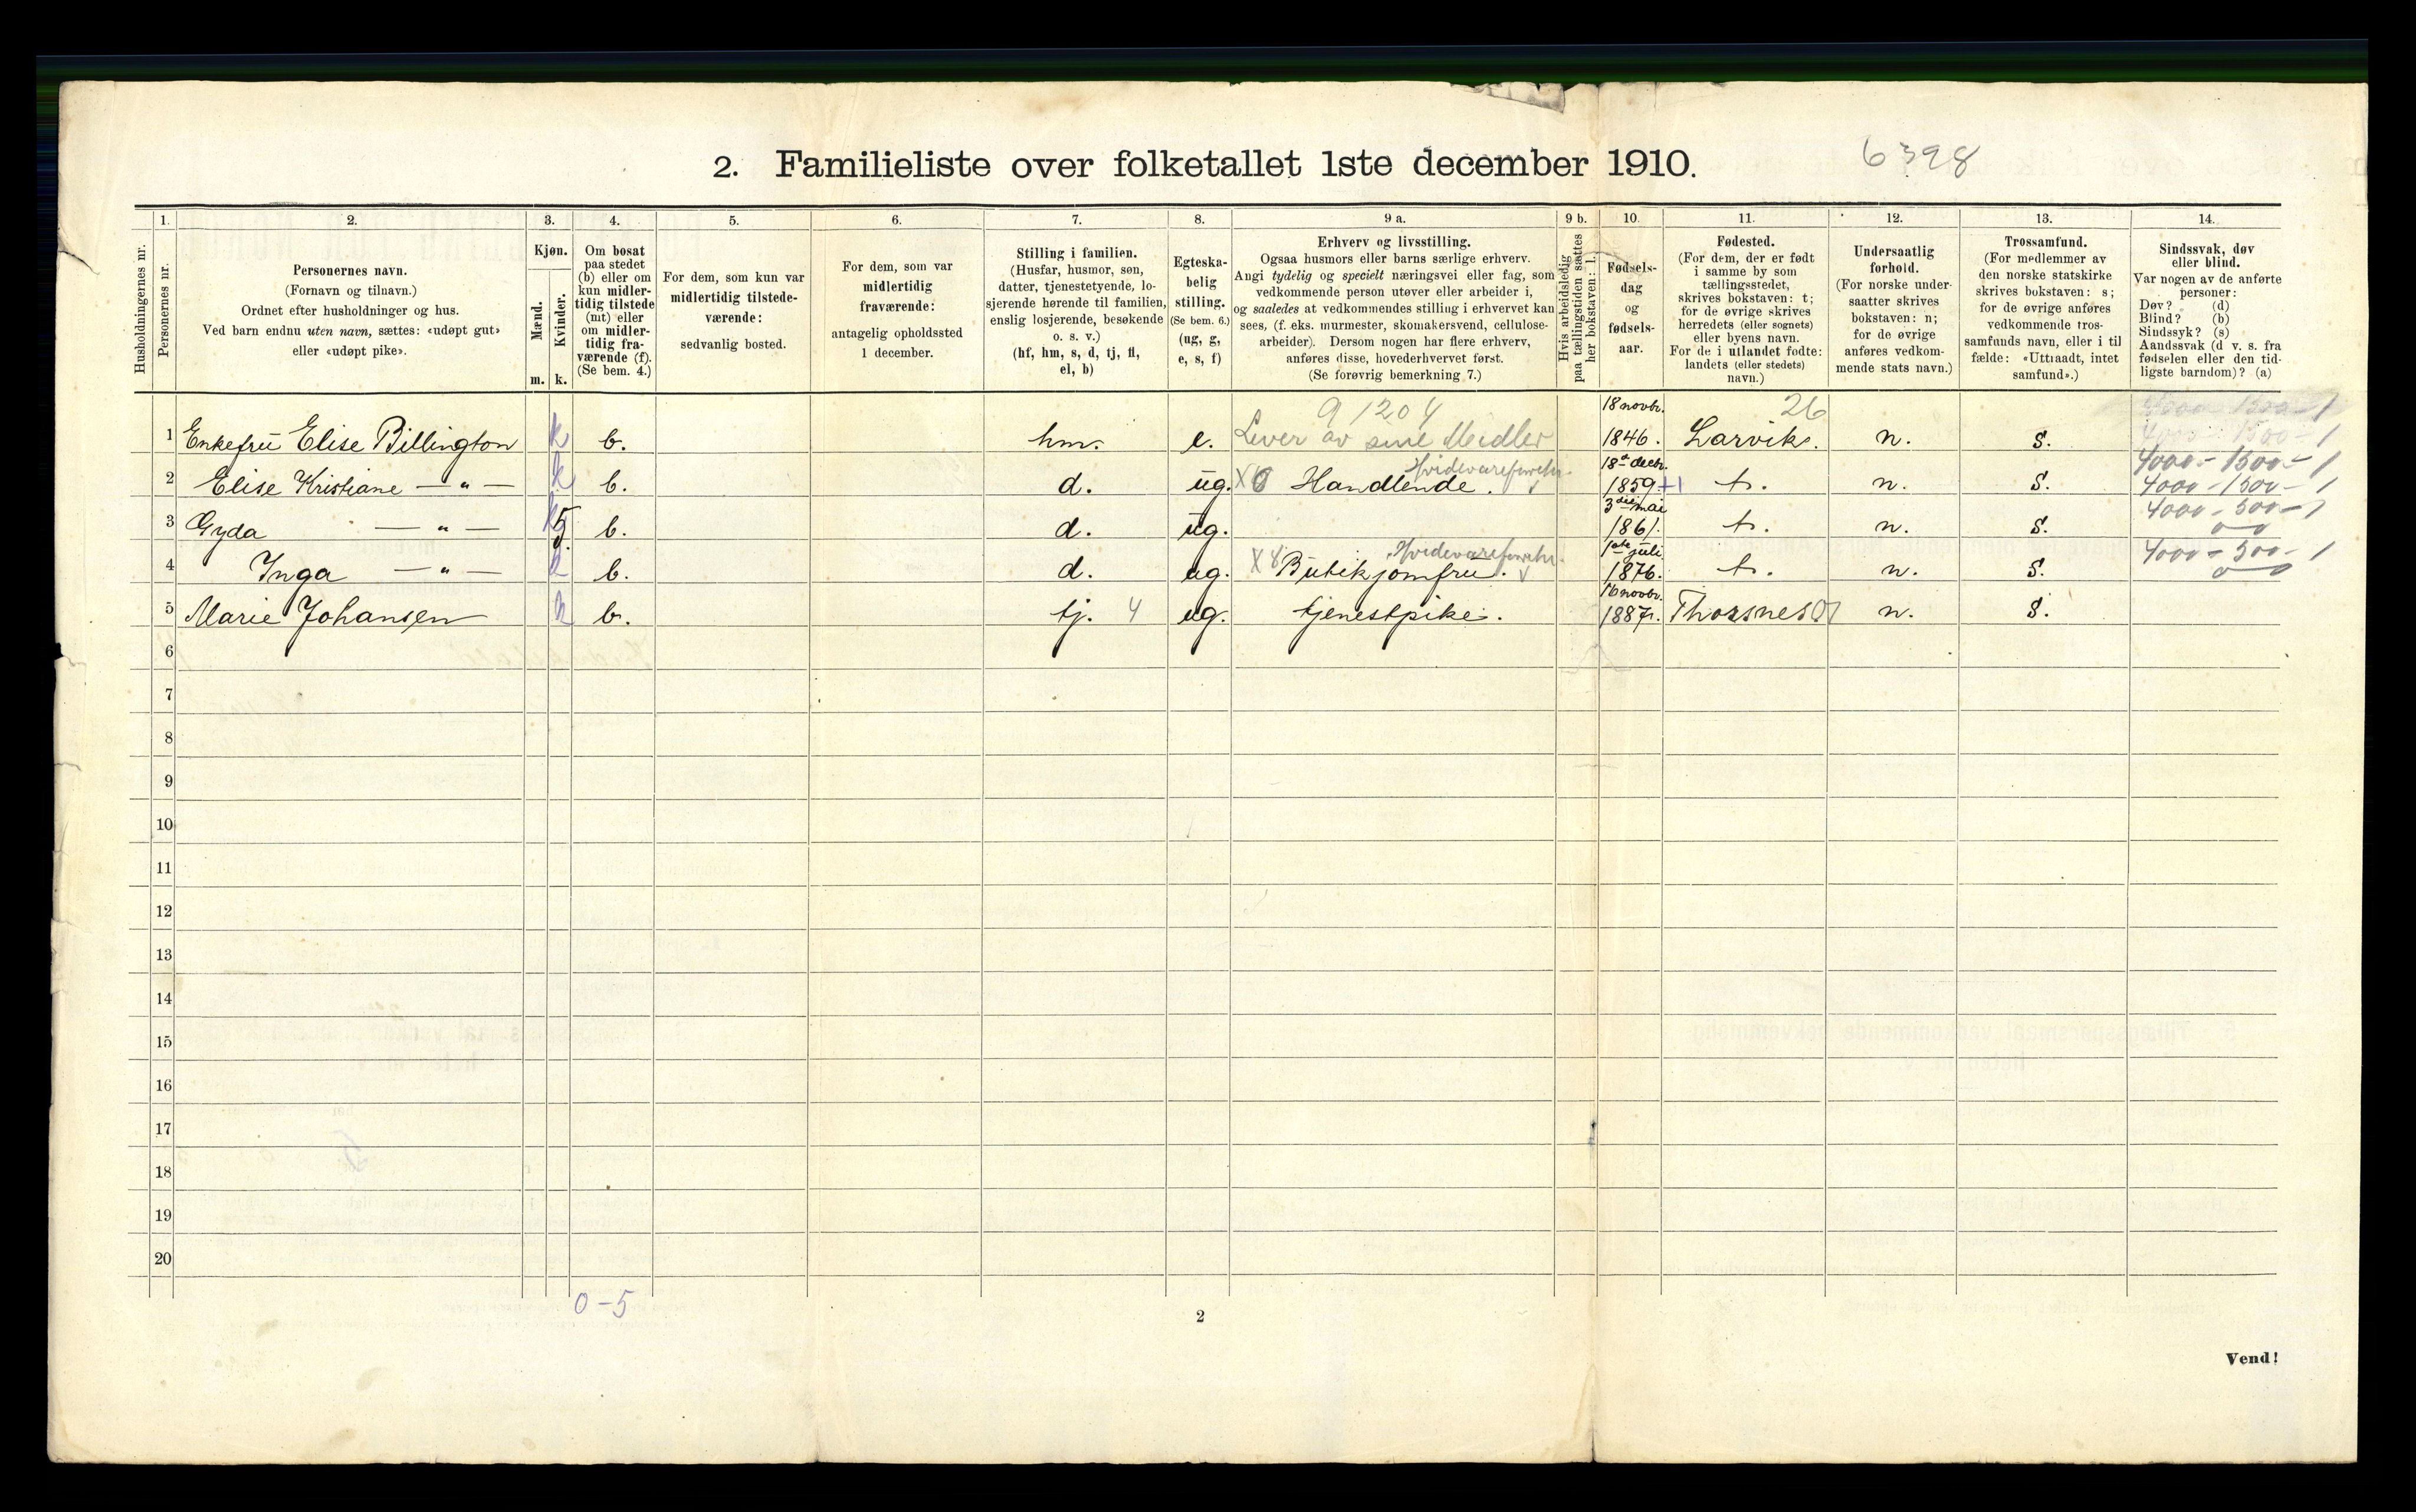 2. Familieliste over folketallet 1ste december 1910.
6398
Husholdningernes nr.
1.
Personernes nr.
2.
Personernes navn.
(Fornavn og tilnavn.)
Ordnet efter husholdninger og hus.
Ved barn endnu uten navn, sættes: «udøpt gut»
eller «udøpt pike».
3.
Kjøn.
Mænd.
Kvinder.
m. k.
4.
Om bosat
paa stedet
(b) eller om
kun midler-
tidig tilstede
(mt) eller
om midler-
tidig fra-
værende (f).
(Se bem. 4.)
5.
For dem, som kun var
midlertidig tilstede-
værende:
sedvanlig bosted.
6.
For dem, som var
midlertidig
fraværende:
antagelig opholdssted
1 december.
7.
Stilling i familien.
(Husfar, husmor, søn,
datter, tjenestetyende, lo-
sjerende hørende til familien,
enslig losjerende, besøkende
o. s. v.)
(hf, hm, s, d, tj, fl,
el, b)
8.
Egteska-
belig
stilling.
(Se bem. 6.)
(ug, g,
e, s, f)
9 a.
Erhverv og livsstilling.
Ogsaa husmors eller barns særlige erhverv.
Angi tydelig og specielt næringsvei eller fag, som
vedkommende person utøver eller arbeider i,
og saaledes at vedkommendes stilling i erhvervet kan
sees, (f. eks. murmester, skomakersvend, cellulose-
arbeider). Dersom nogen har flere erhverv,
anføres disse, hovederhvervet først.
(Se forøvrig bemerkning 7.)
9 b.
Hvis arbeidsledig
paa tællingstiden sættes
her bokstaven: l.
10.
Fødsels-
dag
og
fødsels-
aar.
11.
Fødested.
(For dem, der er født
i samme by som
tællingsstedet,
skrives bokstaven: t;
for de øvrige skrives
herredets (eller sognets)
eller byens navn.
For de i utlandet fødte:
landets (eller stedets)
navn.)
12.
Undersaatlig
forhold.
(For norske under-
saatter skrives
bokstaven: n;
for de øvrige
anføres vedkom-
mende stats navn.)
13.
Trossamfund.
(For medlemmer av
den norske statskirke
skrives bokstaven: s;
for de øvrige anføres
vedkommende tros-
samfunds navn, eller i til
fælde: «Uttraadt, intet
samfund».)
14.
Sindssvak, døv
eller blind.
Var nogen av de anførte
personer:
Døv? (d)
Blind? (b)
Sindssyk? (s)
Aandssvak (d v. s. fra
fødselen eller den tid-
ligste barndom)? (a)
9 1204 18 novbr. 26
1 Enkefrü Elise Billington k b. hm. e. Lever av sine Midler 1846. Larvik. n. s. 4000 - 1500 - 1
18de decbr. 4000 - 1500 - 1
2 Elise Kristiane — „ — k b. d. ug. X6 Handlende. 1859. +1 t. n. s. 4000 - 1500 - 1
3die mai 4000 - 500 - 1
3 Gyda — „ — 5 b. d. ug. 1861. t. n. s.
1ste juli 4000 - 500 - 1
4 Inga — „ — k b. d. ug. X8 Butikjomfrü. 1876. t. n. s.
16 novbr.
5 Marie Johansen k b. tj. 4 ug. tjenestpike. 1887. Thorsnes 01 n. s.
6
7
8
9
10
11
12
13
14
15
16
17
18
19
20
0-5
2
Vend!